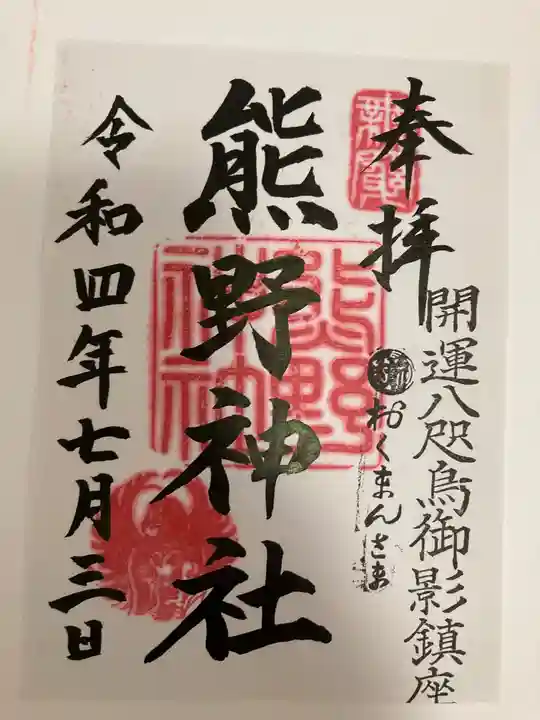 奉拝
開運八咫烏御影鎮座
おくまんさま
熊野神社
熊野
神社
令和四年七月三日